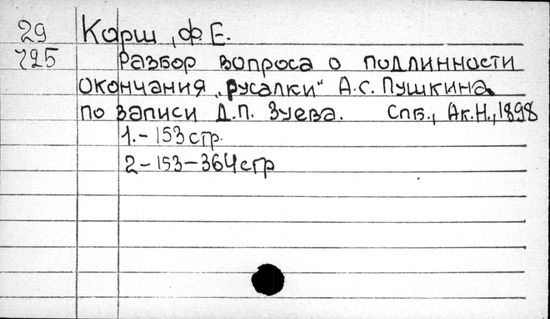 29 Корш, Ф. Е.
725 Разбор вопроса о подлинности
окончания „русалки“ А.С. Пушкина
по записи Д.П. Зуева. Спб., Ак.Н., 1898
1.-153 стр.
2-153-364 стр